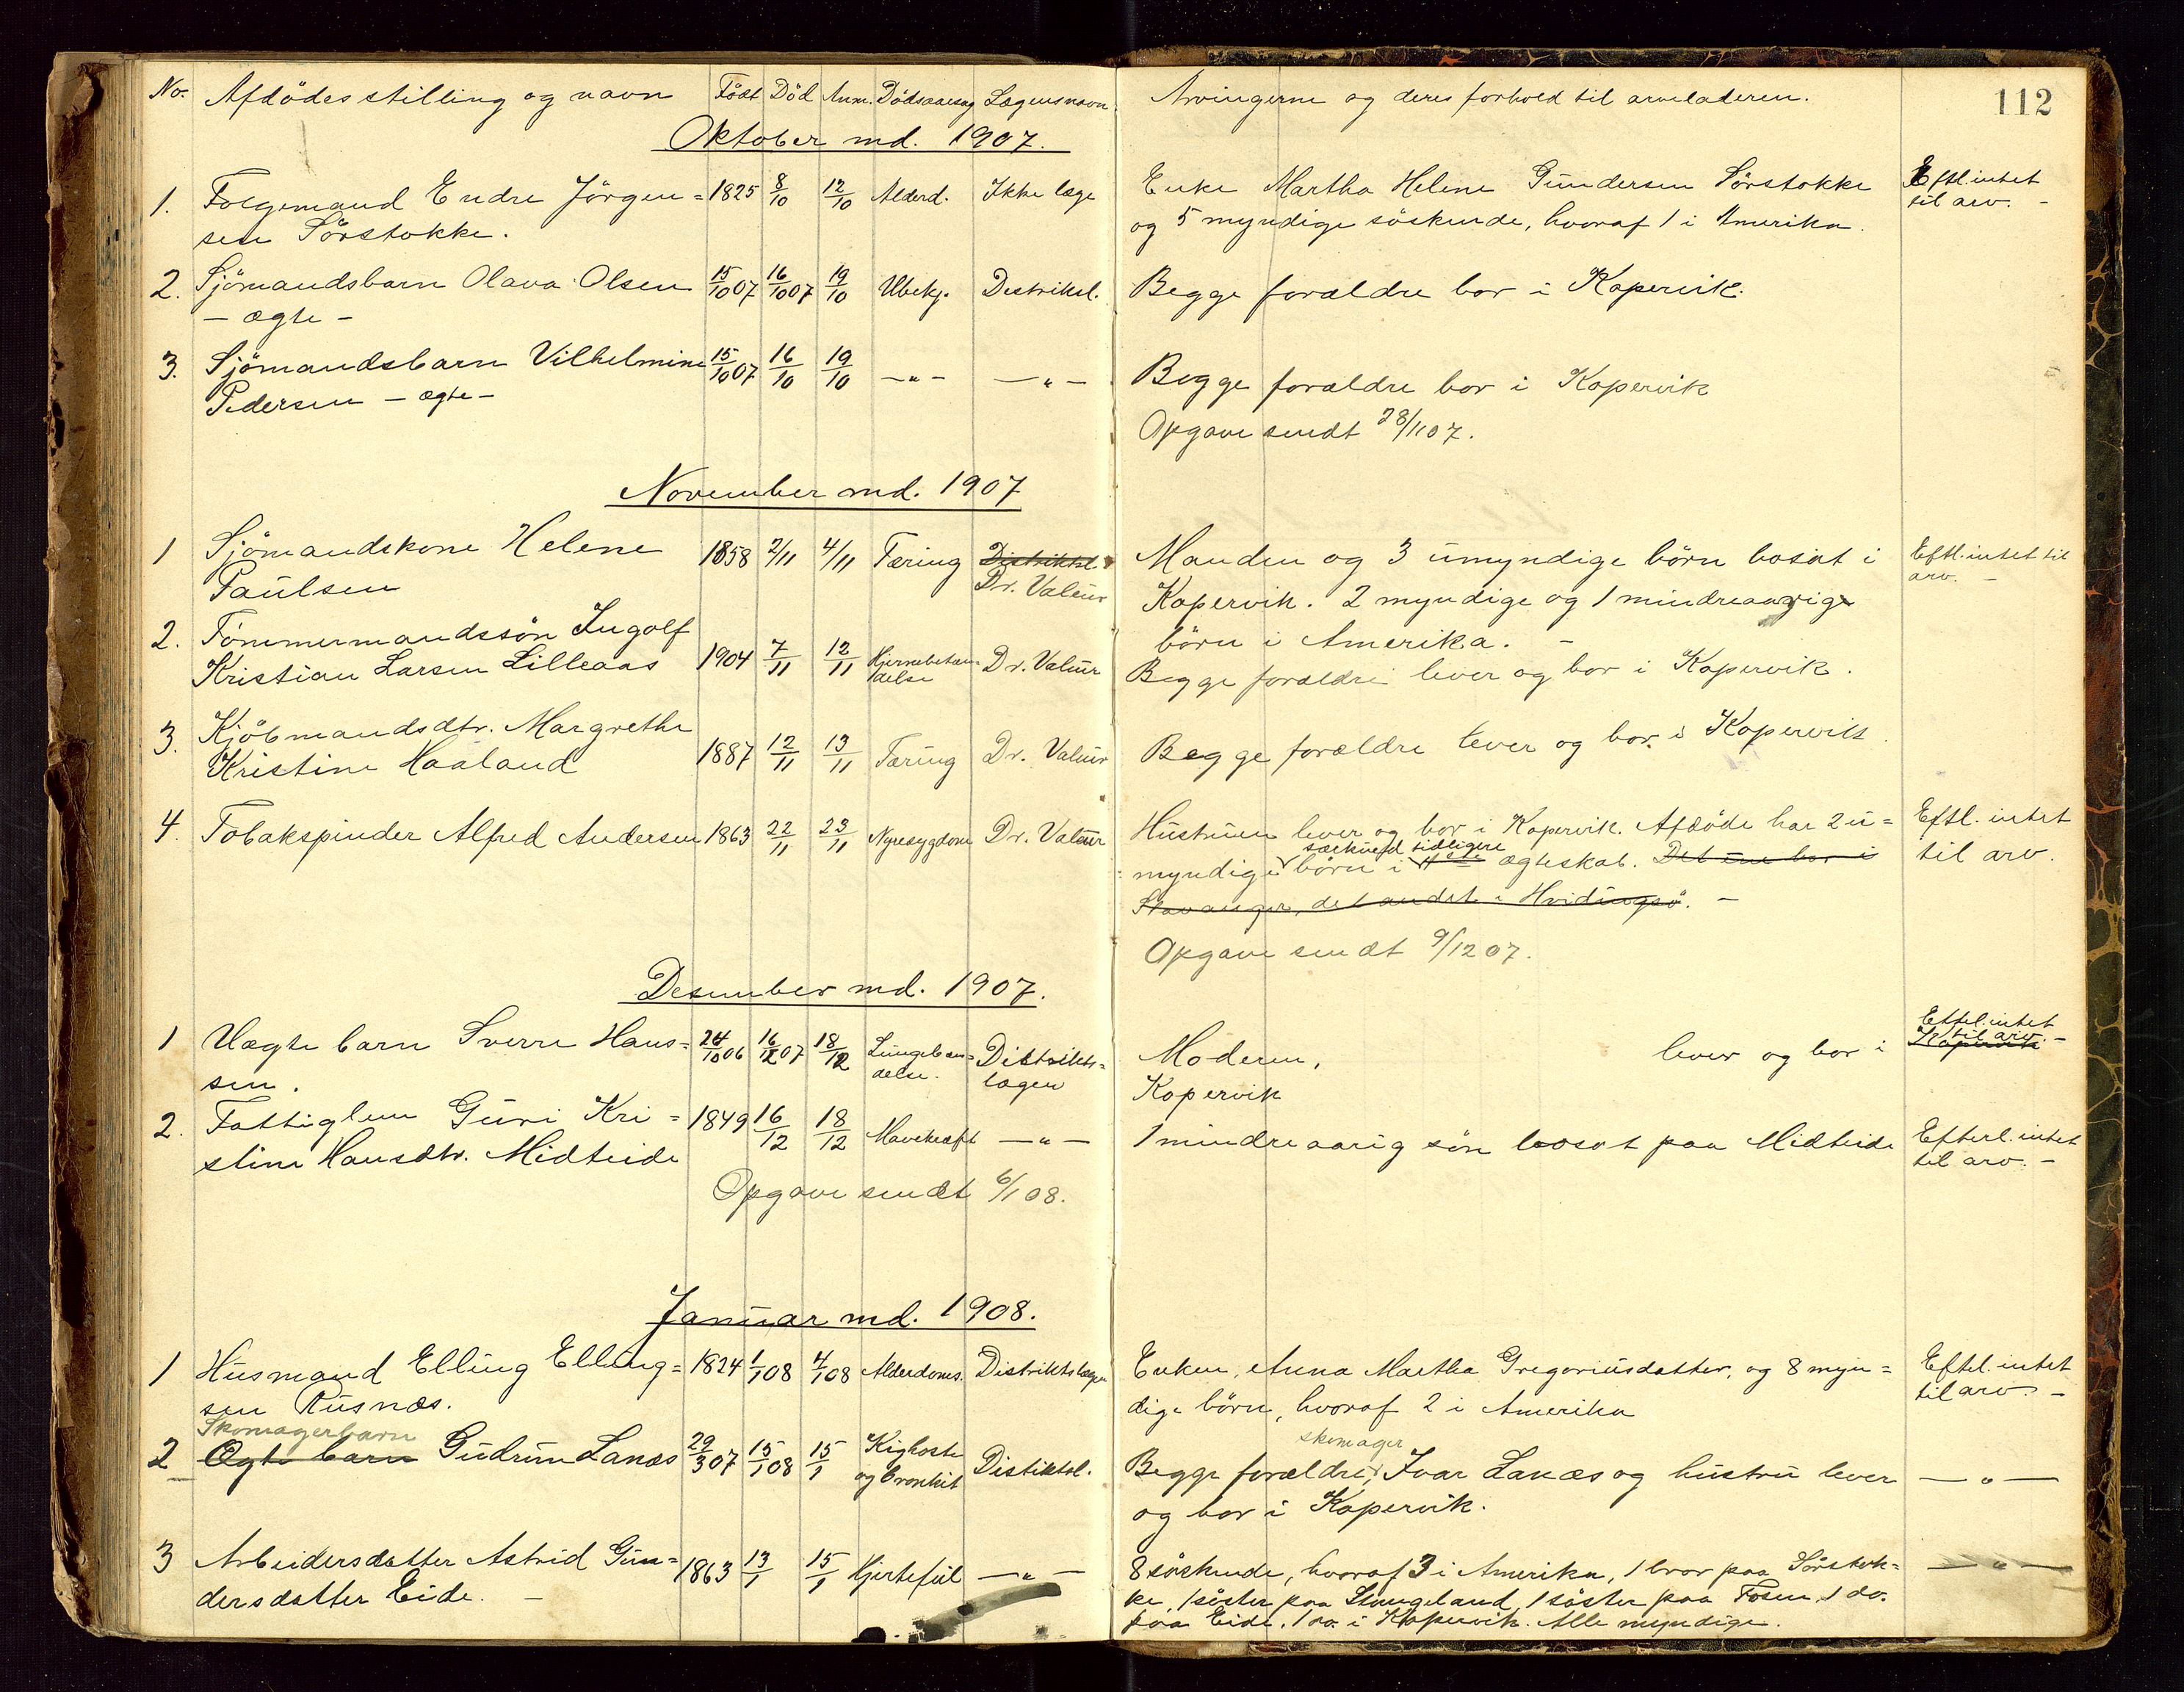 No. Afdödes stilling og navn Födt Död Anm. Dödsaarsag Lægens navn Arvingerne og deres forhold til arveladeren. 112
Oktober md. 1907.
1. Folgemand Endre Jörgen= 1825 8/10 12/10 Alderd. Ikke læge Enke Martha Helene Gundersen Sörstokke Eftl. intet
sen Sörstokke. og 5 myndige söskende, hvoraf 1 i Amerika. til arv. -
2. Sjömandsbarn Olava Olsen 15/10 07 16/10 07 19/10 Ubekj. Distriksl. Begge forældre bor i Kopervik.
- ægte -
3. Sjömandsbarn Vilhelmine 15/10 07 16/10 19/10 -"- -"- Begge forældre bor i Kopervik
Pedersen - ægte - Opgave sendt 28/11 07.
November md. 1907
1 Sjömandskone Helene 1858 2/11 4/11 Tæring Distriktsl. Manden og 3 umyndige börn bosat i Eftl. intet til
Paulsen Dr. Valeur Kopervik. 2 myndige og 1 mindreaarige arv. -
börn i Amerika. -
2. Tömmermandssön Ingolf
Kristian Larsen Lilleaas 1904 7/11 12/11 Hjernebetæn= Dr. Valeur Begge forældre lever og bor i Kopervik.
delse
3. Kjöbmandsdtr. Margrethe
Kristine Haaland 1887 12/11 13/11 Tæring Dr. Valeur Begge forældre lever og bor i Kopervik.
4. Tobakspinder Alfred Andersen 1863 22/11 23/11 Nyresygdom Dr. Valeur Hustruen lever og bor i Kopervik. Afdöde har 2 u= Eftl. intet
særkuld tidligere
myndige börn i ægteskab. Det ene bor i til arv.
Stavanger, det andet i Hvidingsö. -
Opgave sendt 9/12 07.
Desember md. 1907.
1 Uægte barn Sverre Han= 24/10 06 16/12 07 18/12 Lungebetæn= Distrikts= Moderen, lever og bor i Kopervik Eftel. intet til arv. -
sen. delse. lægen Kopervik
2. Fattiglem Guri Kri= 1849 16/12 18/12 Mavekræft -"- 1 mindreaarig sön bosat paa Midteide Efterl. intet
stine Hansdtr. Midteide til arv. -
Opgave sendt 6/1 08.
Januar md. 1908.
1 Husmand Elling Elling= 1824 1/1 08 4/1 08 Alderdoms. Distriktslægen Enken, Anna Martha Gregoriusdatter, og 8 myn= Eftel. intet
sen Rusnæs. dige börn, hvoraf 2 i Amerika til arv. -
Skomagerbarn skomager
2 Ægte barn Gudrun Lanæs 29/3 07 15/1 08 15/1 Kighoste Distiktsl. Begge forældre, Ivar Lanæs og hustru lever -"-
og bronkit og bor i Kopervik.
3 Arbeidersdatter Astrid Gun= 1863 13/1 15/1 Hjertefeil -"- 8 söskende, hvoraf 3 i Amerika, 1 bror paa Sörstok= -"-
dersdatter Eide. - ke, 1 söster paa Stangeland, 1 söster paa Fosen, 1 do.
paa Eide, 1 do. i Kopervik. Alle myndige.